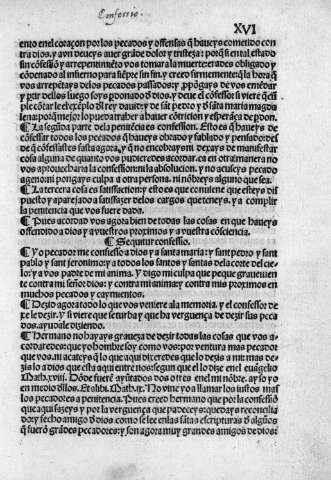 Confessio.
XVI
ento en el coraçon por los pecados y offensas q̃ haueys cometido con
tra dios. y aun deueys auer grãde dolor y tristeza: porq̃ si en tal estado
sin cõfessiõ y arrepentimiẽto vos tomara la muerte: erades obligado y
cõdenado al infierno para siẽpre sin fin. y creed firmemente q̃ la hora q̃
vos arrepẽtays delos pecados passados: y ppõgays de vos emẽdar
y huir dellos luego soys pdonado d̃ dios. y deue el cõfessor si viere q̃ cũ
ple cõtar le el exẽplo dl rey dauit: y de sãt pedro y d̃ sãta maria magda
lena: porq̃ mejor lo pueda traher a hauer cõtricion y esperãça de pdon.
¶ La segũda parte dela penitẽcia es confession. Esto es q̃ haueys de
cõfessar todos los pecados q̃ haueys obrado y fablado y pensado des
de q̃ cõfessastes fasta agora, y q̃ no encobrays ni dexeys de manifestar
cosa alguna de quanto vos pudieredes acordar. ca en otra manera no
vos aprouecharia la confession: ni la absolucion. y no acuseys pecado
ageno ni pongays culpa a otra persona. ni nõbreys alguno que sea.
¶ La tercera cosa es satisfaction: y esto es que conuiene que esteys dis
puesto y aparejado a satisfazer delos cargos que teneys. y a complir
la penitencia que vos fuere dada.
¶ Pues acordad vos agora bien de todas las cosas en que haueys
offendido a dios y a vuestros proximos y a vuestra cõsciencia.
¶ Sequitur confessio.
¶ Y o pecador me confiesso a dios y a santa maria: y sant pedro y sant
pablo y sant jeronimo: y a todos los santos y santas dela corte del cie-
lo: y a vos padre de mi anima. Y digo mi culpa que peque grauemen
te contra mi señor dios: y contra mi anima: y contra mis proximos en
muchos pecados y caymientos.
¶ Dezid agora todo lo que vos veniere ala memoria. y el confessor de
xe le dezir. Y si viere que se turba y que ha verguença de dezir sus peca
dos. ayudale diziendo.
¶ Hermano no hayays graueza de dezir todas las cosas que vos a-
cordaredes: que yo hombre soy como vos: por ventura mas pecador
que vos. ni acateys q̃ lo que aqui dixeredes que lo dezis a mi: mas de-
zis lo a dios que esta aqui entre nos: segun que el lo dize enel euãgelio
Math. xviij. Dõde fuerẽ ayũtados dos o tres enel mi nõbre. ay so yo
en medio dllos. Et alibi. Math. ix. No vine yo a llamar los justos mas
los pecadores a penitencia. Pues creed hermano que por la confessiõ
que aqui fazeys y por la verguença que padeceys: quedays reconcilia
do: y fecho amigo d̃ dios. como se lee enlas sãtas escripturas d̃ algũos
q̃ fuerõ grãdes pecadores: y son agora muy grandes amigos de dios: